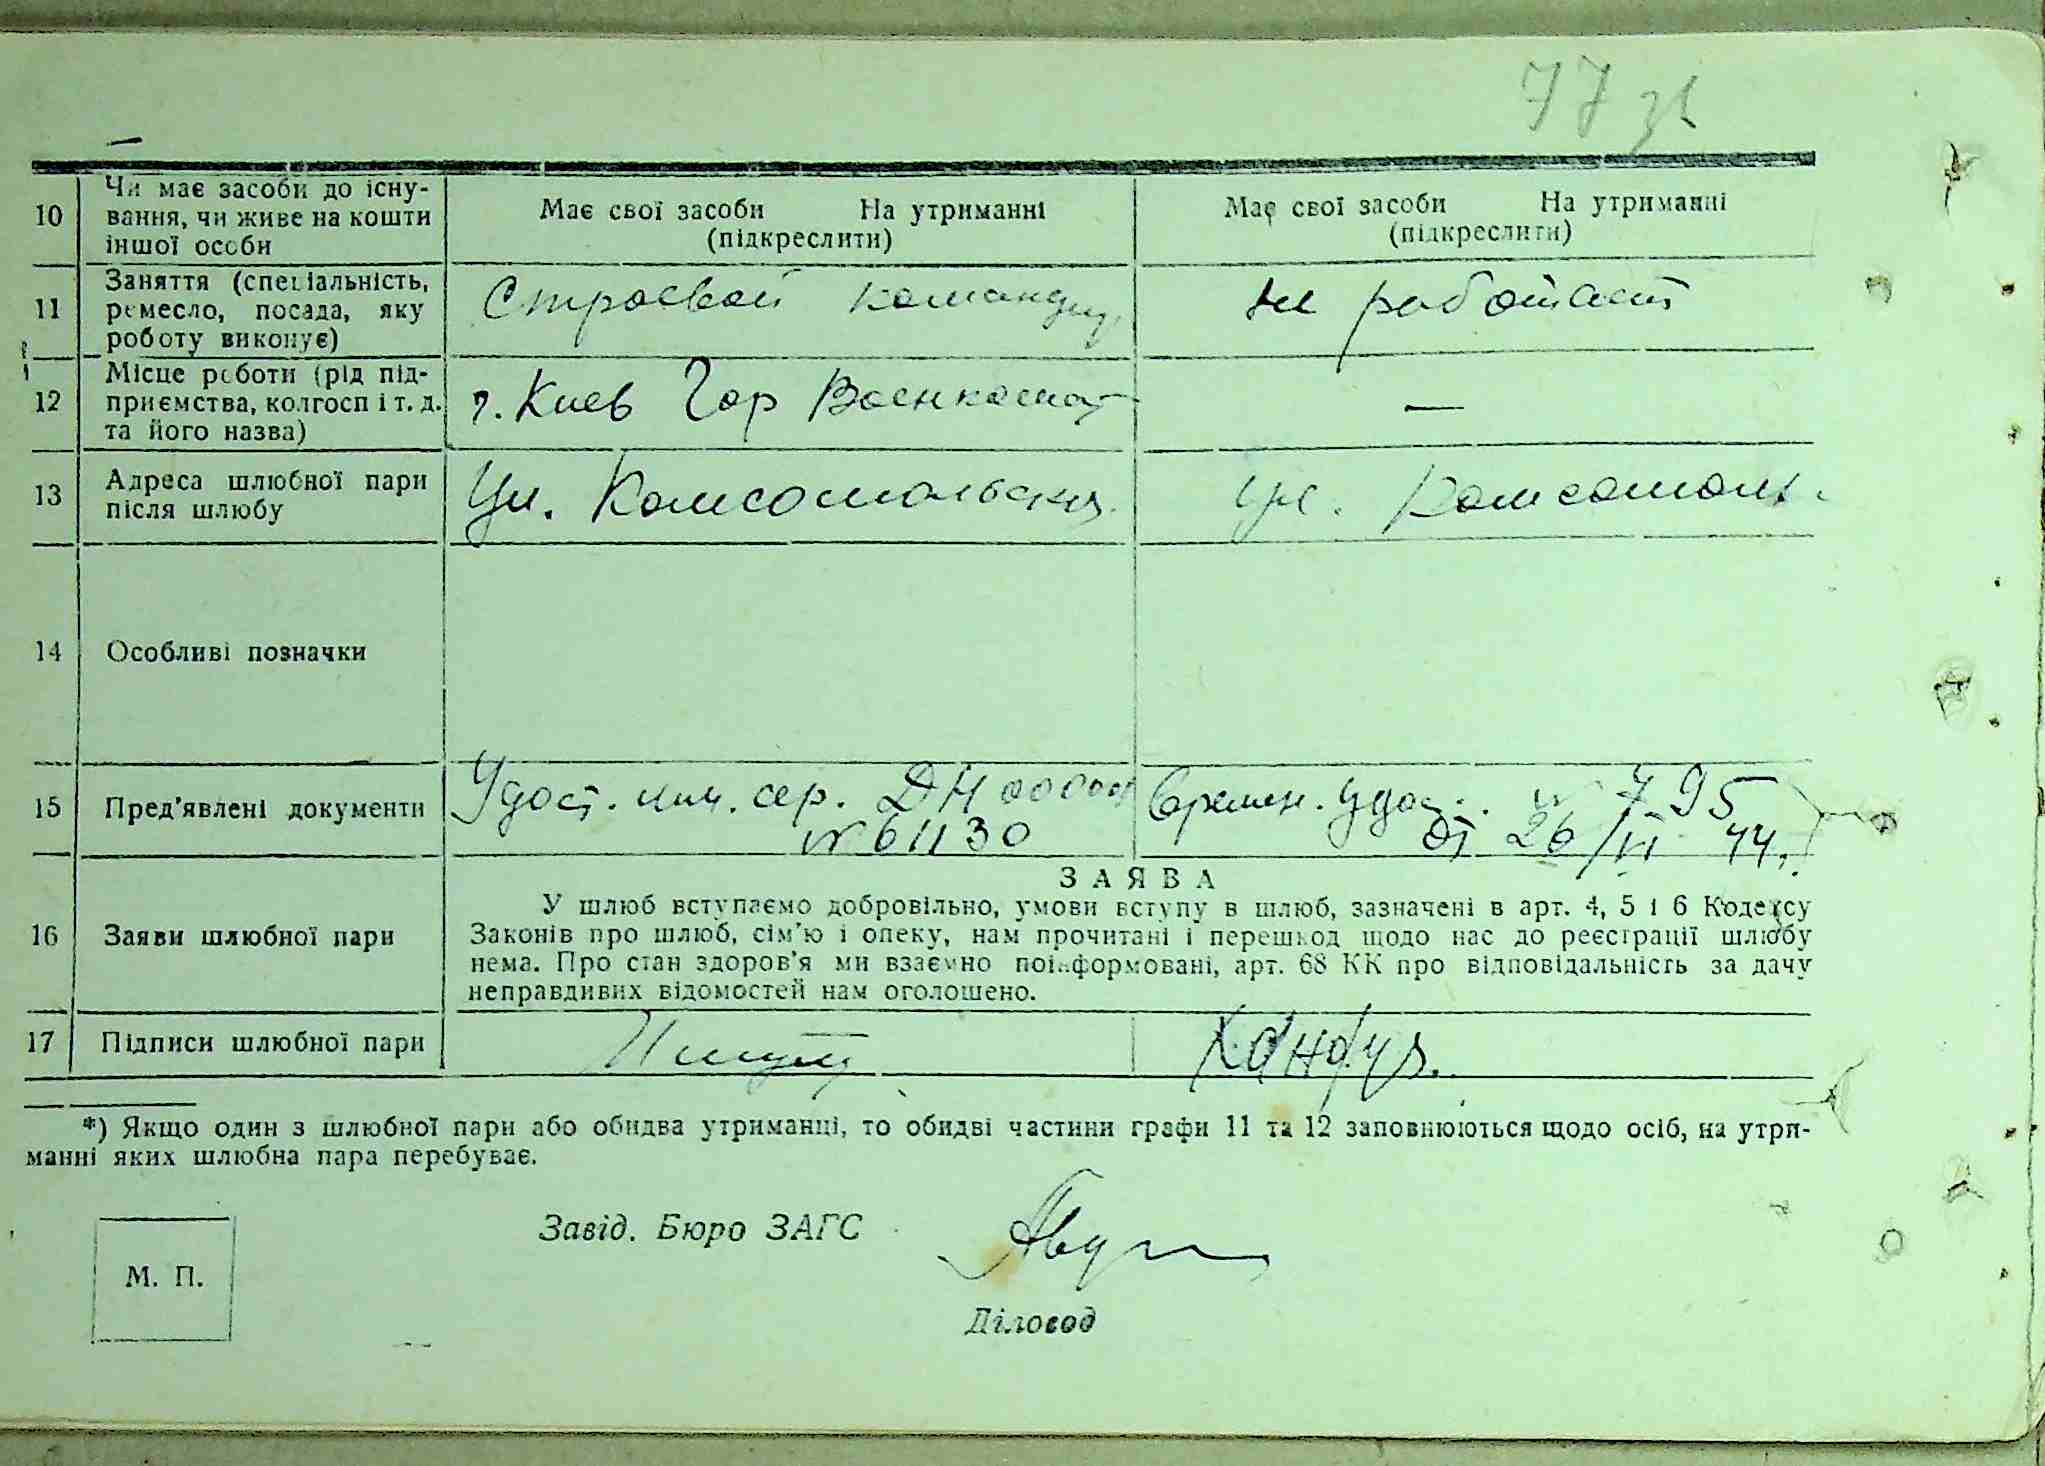 77 зв
10 Чи має засоби до існу-
вання, чи живе на кошти
іншої особи
Має свої засоби На утриманні
(підкреслити)
Має свої засоби На утриманні
(підкреслити)
11 Заняття (спеціальність,
ремесло, посада, яку
роботу виконує)
Строевой командир
не работает
12 Місце роботи (рід під-
приємства, колгосп і т. д.
та його назва)
г. Киев Гор Военкомат
—
13 Адреса шлюбної пари
після шлюбу
Ул. Комсомольская
ул. Комсомольс
14 Особливі позначки
15 Пред'явлені документи
Удост. лич. сер. ДН 00000
№ 61130
Времен. удос. № 795
от 26/VI 44.
ЗАЯВА
16 Заяви шлюбної пари
У шлюб вступаємо добровільно, умови вступу в шлюб, зазначені в арт. 4, 5 і 6 Кодексу
Законів про шлюб, сім'ю і опеку, нам прочитані і перешкод щодо нас до реєстрації шлюбу
нема. Про стан здоров'я ми взаємно поінформовані, арт. 68 КК про відповідальність за дачу
неправдивих відомостей нам оголошено.
17 Підписи шлюбної пари
*) Якщо один з шлюбної пари або обидва утриманці, то обидві частини графи 11 та 12 заповнюються щодо осіб, на утри-
манні яких шлюбна пара перебуває.
Завід. Бюро ЗАГС
М. П.
Діловод